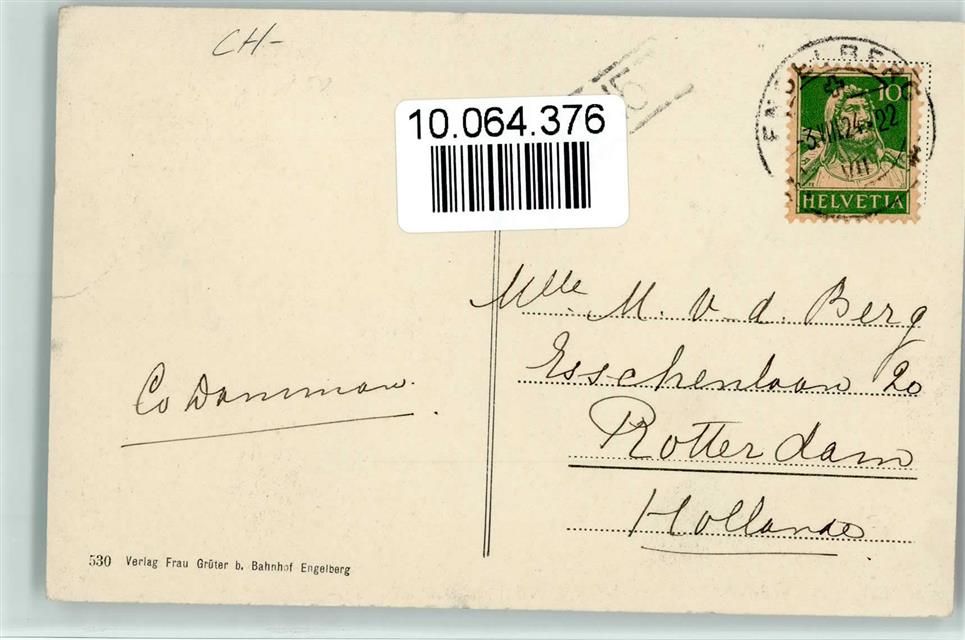 CH-
15
10.064.376
ENGELBERG
10
-3.VIII.24-22
VIII
HELVETIA
Mlle M. v. d. Berg
Esschenlaan 20
Rotterdam
Hollande
Co Damman.
530 Verlag Frau Grüter b. Bahnhof Engelberg